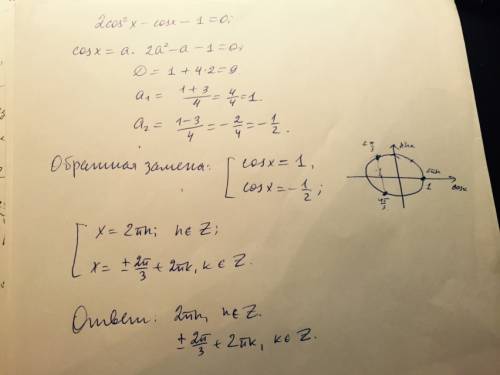 2cos²x - cosx - 1 = 0;
cosx = a. 2a² - a - 1 = 0;
D = 1 + 4·2 = 9
a₁ = (1+3)/4 = 4/4 = 1.
a₂ = (1-3)/4 = -2/4 = -1/2.
Обратная замена: [ cosx = 1,
cosx = -1/2;
2π/3
sinx
2πn
1
cosx
4π/3
[ x = 2πn; n∈Z;
x = ± 2π/3 + 2πk, k∈Z.
Ответ: 2πn, n∈Z.
± 2π/3 + 2πk, k∈Z.